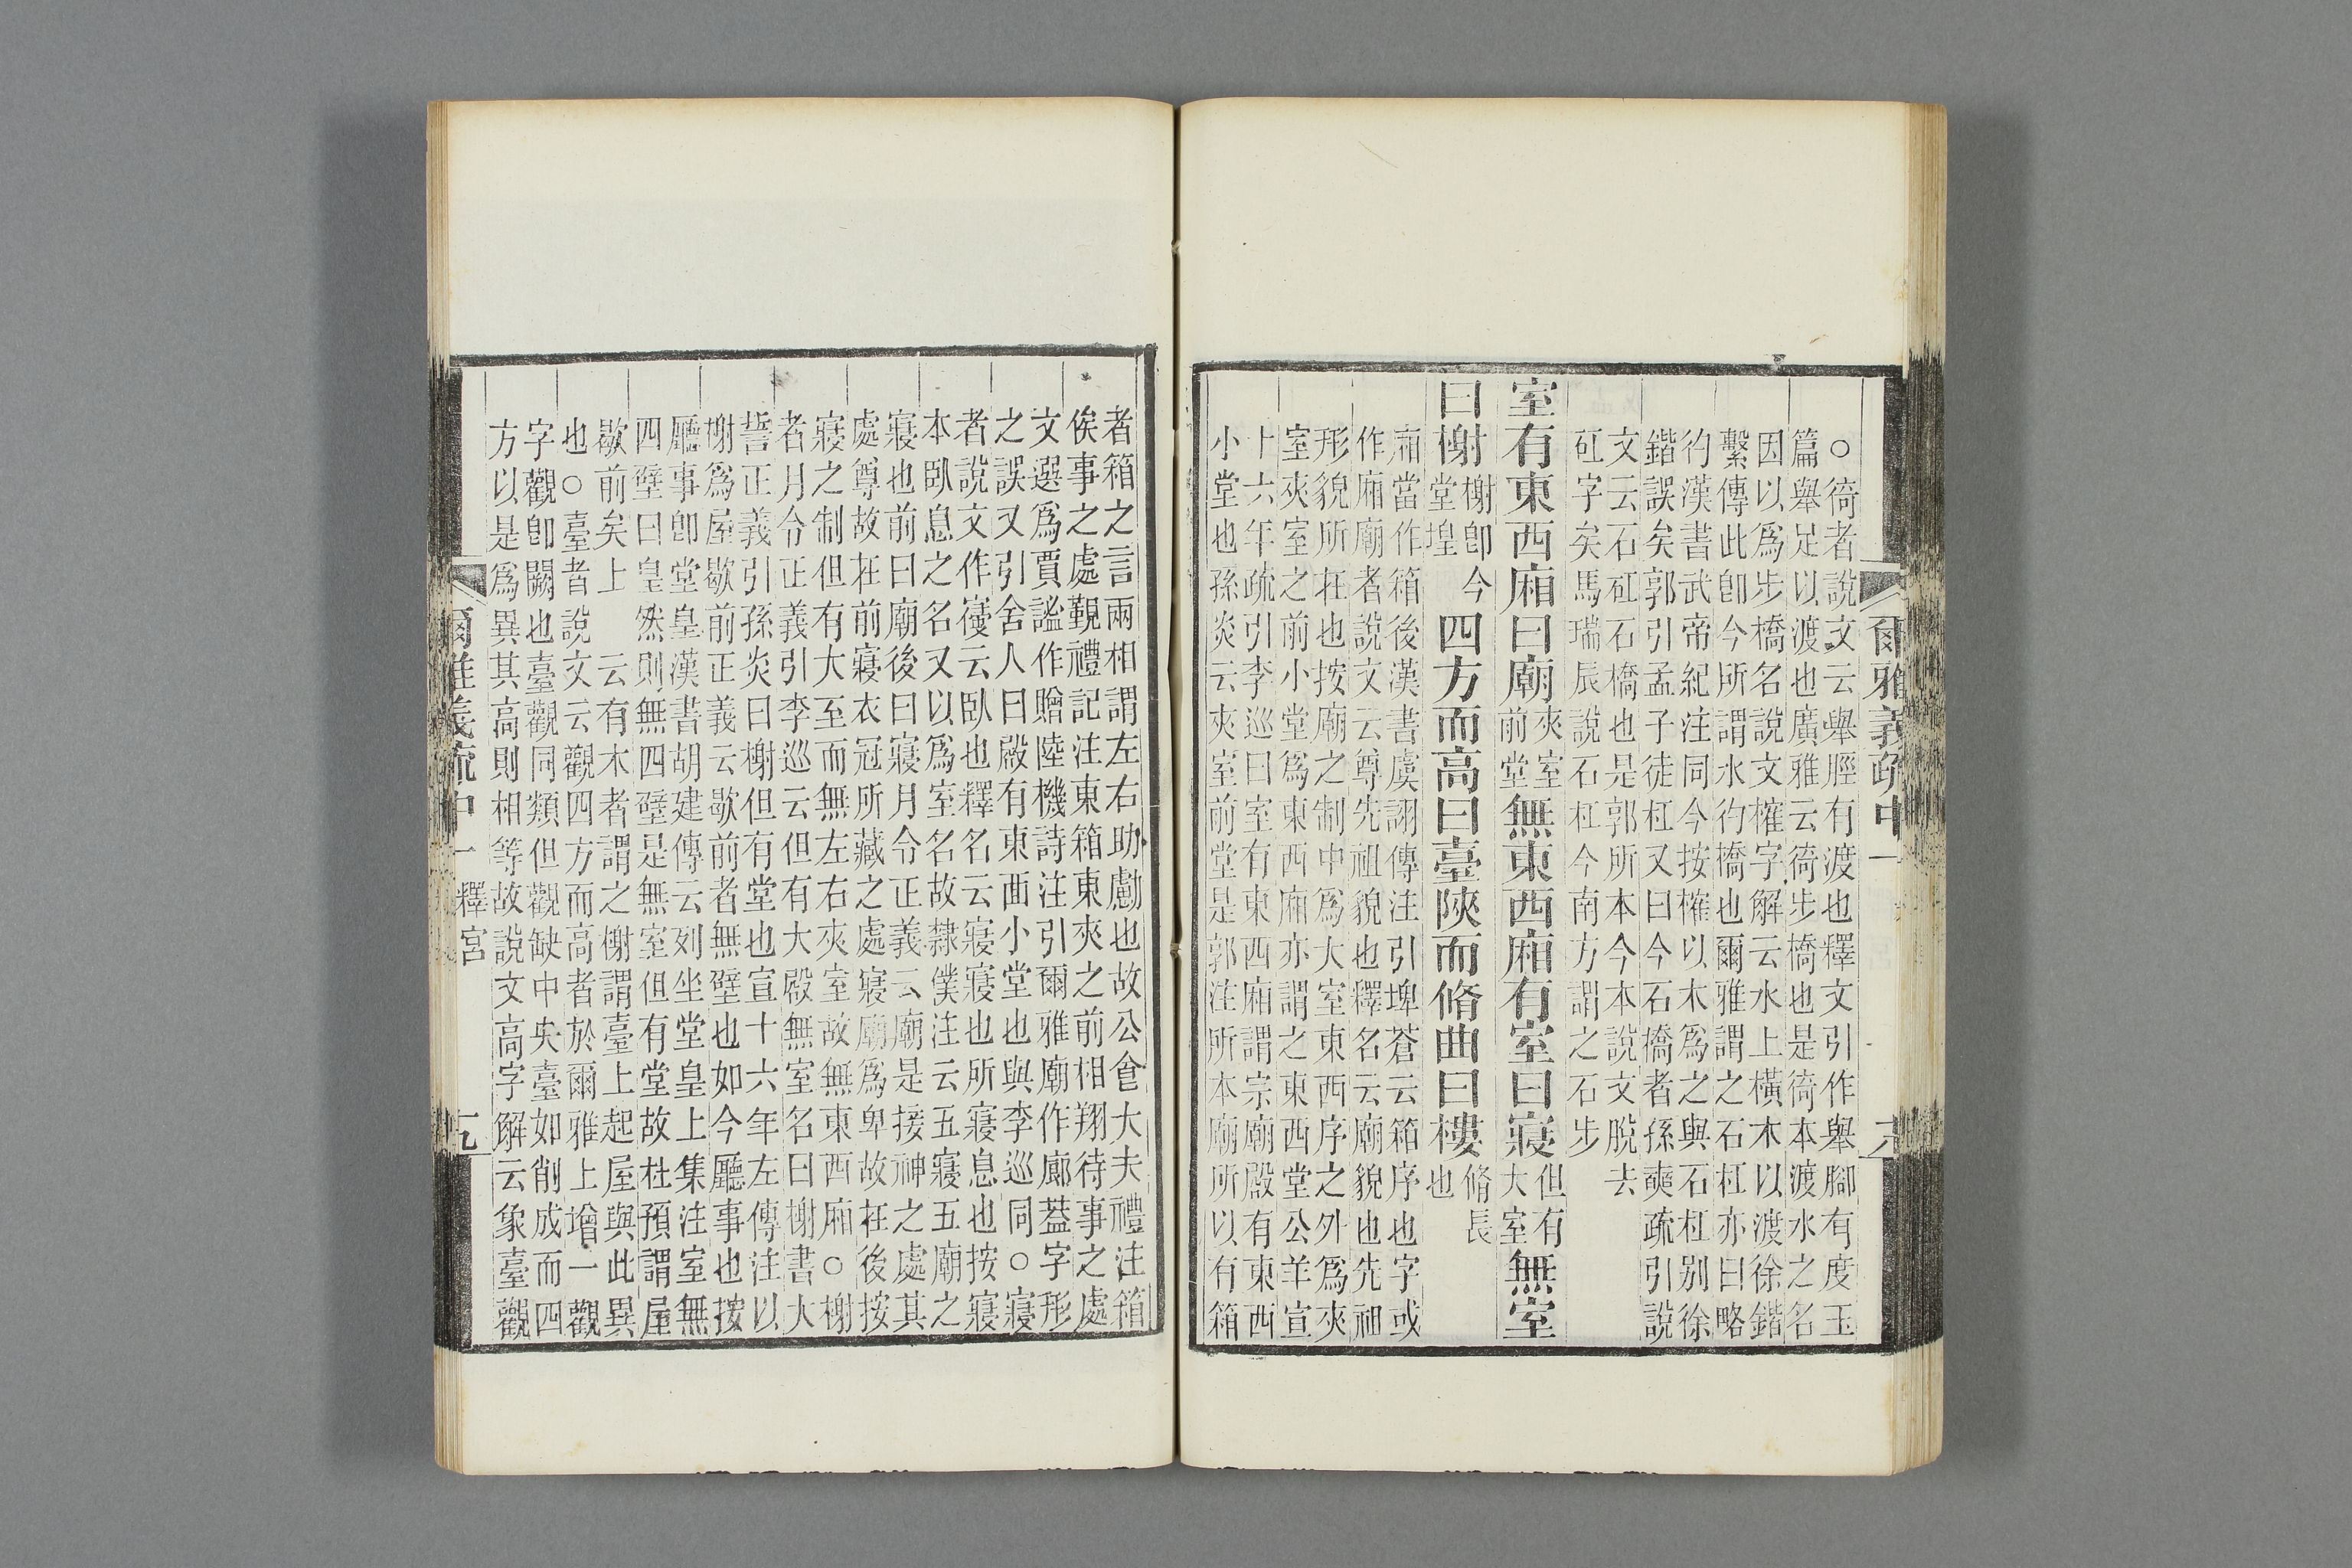 爾雅義疏中一
○徛者說文云舉脛有渡也釋文引作舉腳有度玉
篇舉足以渡也廣雅云徛步橋也是徛本渡水之名
因以爲步橋名說文榷字解云水上橫木以渡徐鍇
繫傳此卽今所謂水彴橋也爾雅謂之石杠亦曰略
彴漢書武帝紀注同今按榷以木爲之與石杠别徐
鍇誤矣郭引孟子徒杠又曰今石橋者孫奭疏引說
文云石矼石橋也是郭所本今本說文脫去
矼字矣馬瑞辰說石杠今南方謂之石步
室有東西廂曰廟夾室前堂無東西廂有室曰寢但有大室無室
曰榭榭卽今堂堭四方而高曰臺陝而脩曲曰樓脩長也
廂當作箱後漢書虞詡傳注引埤蒼云箱序也字或
作廂廟者說文云尊先祖貌也釋名云廟貌也先祖
形貌所在也按廟之制中爲大室東西序之外爲夾
室夾室之前小堂爲東西廂亦謂之東西堂公羊宣
十六年疏引李巡曰室有東西廂謂宗廟殿有東西
小堂也孫炎云夾室前堂是郭注所本廟所以有箱
者箱之言兩相謂左右助勴也故公食大夫禮注箱
俟事之處覲禮記注東箱東夾之前相翔待事之處
文選爲賈謐作贈陸機詩注引爾雅廟作廊葢字形
之誤又引舍人曰殿有東面小堂也與李巡同○寢
者說文作㝲云臥也釋名云寢寢也所寢息也按寢
本臥息之名又以爲室名故隸僕注云五寢五廟之
寢也前曰廟後曰寢月令正義云廟是接神之處其
處尊故在前寢衣冠所藏之處寢廟爲卑故在後按
寢之制但有大至而無左右夾室故無東西廂○榭
者月令正義引李巡云但有大殿無室名曰榭書大
誓正義引孫炎曰榭但有堂也宣十六年左傳注以
榭爲屋歇前正義云歇前者無壁也如今廳事也按
廳事卽堂皇漢書胡建傳云列坐堂皇上集注室無
四壁曰皇然則無四壁是無室但有堂故杜預謂屋
歇前矣上 云有木者謂之榭謂臺上起屋與此異
也○臺者說文云觀四方而高者於爾雅上增一觀
字觀卽闕也臺觀同類但觀缺中央臺如削成而四
方以是爲異其高則相等故說文高字解云象臺觀
爾雅義疏中一 釋宮 十九